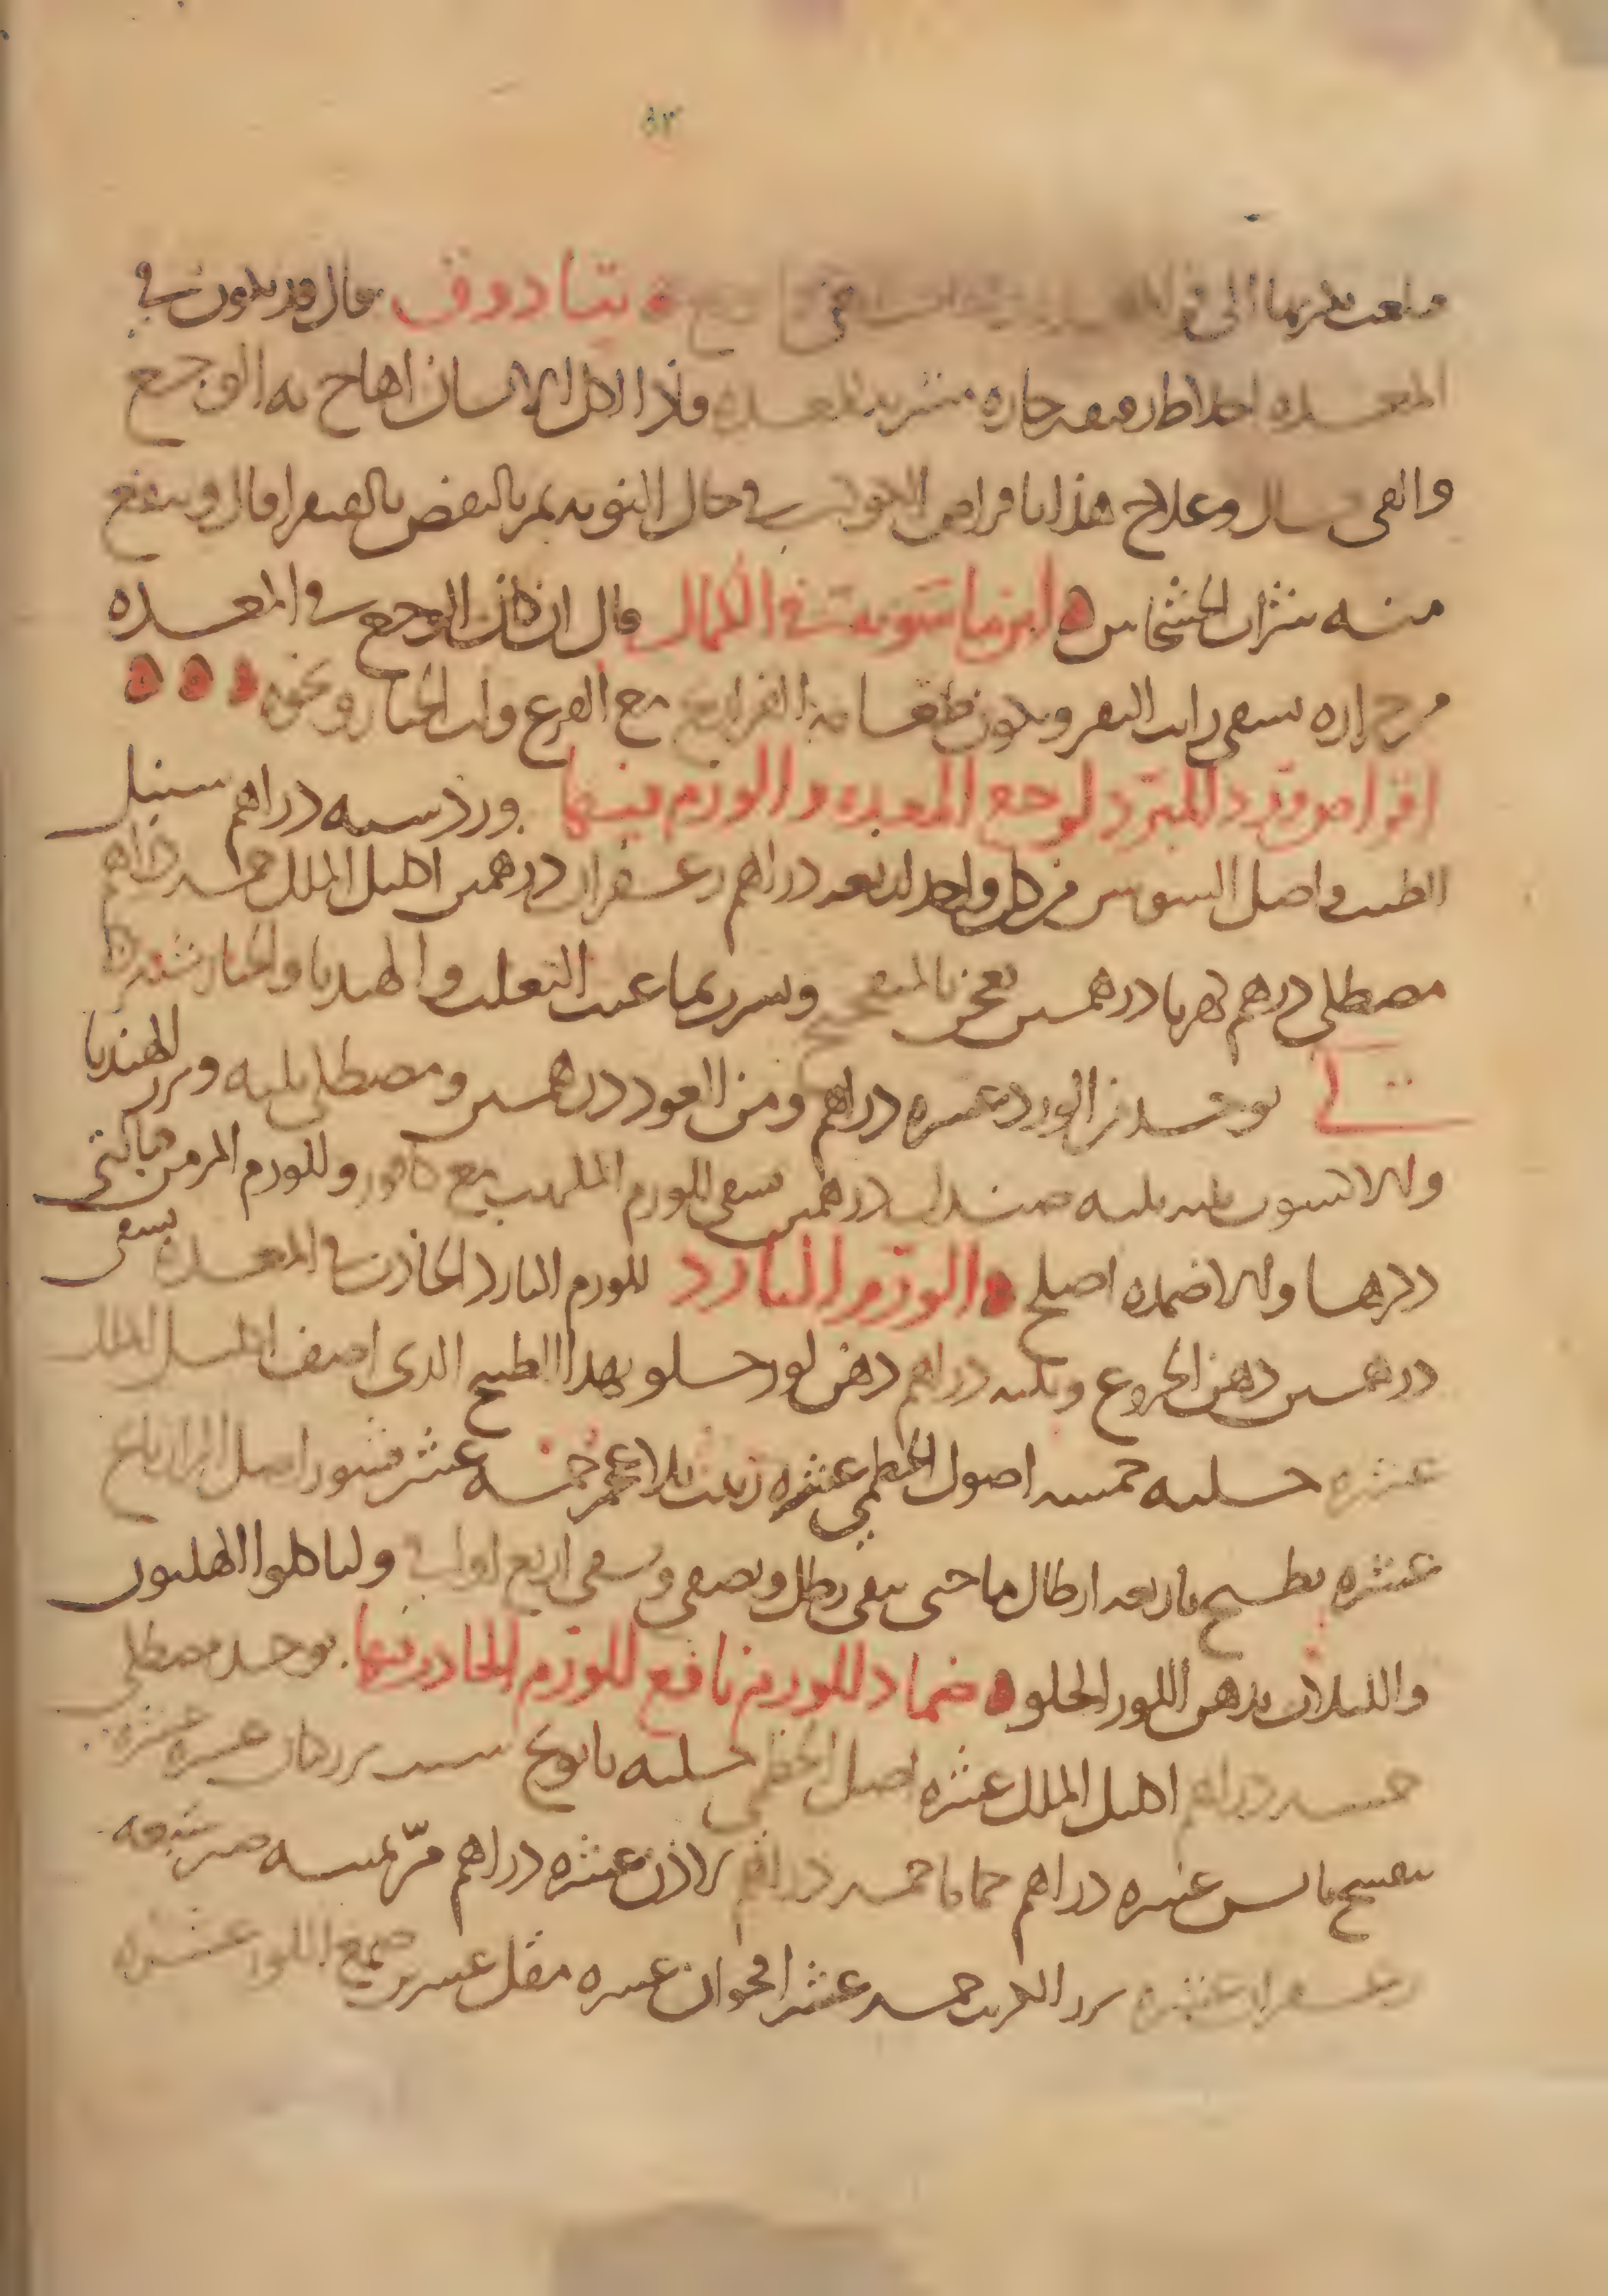 ٥٢
تيادوق قال قد يكون في
المعده اخلاط رقيقه حاره متشربه للمعده فاذا اكل الانسان اهاج به الوجع
والقى قال وعلاج هذا باقراص الكوكب في حال النوبه ثم بالنفض بالصفرا قال وينفع
منه شراب الخشخاش ابن ماسويه في الكمال قال ان كان الوجع في المعده
من حراره سقى رايب البقر ويكون طعامه الفراريج مع القرع ولب الخيار ونحوه
اقراص ورد المبرد لوجع المعده والورم فيها ورد سته دراهم سنبل
الطيب واصل السوس من كل واحد اربعه دراهم زعفران درهمين اكليل الملك خمسه دراهم
مصطكى درهم كهربا درهمين يعجن بالميفختج وشرب بما عنب الثعلب والهندبا والخيارشنبر
يوخذ من الورد عشره دراهم ومن العود درهمين ومصطكى ثلثه وبزر الهندبا
والانيسون ثلثه ثلثه صندل درهمين يسقى للورم الملهب مع كافور وللورم المزمن
ذكرها والاضمده اصلح الورم البارد للورم البارد الحادث في المعده يسقى
درهمين دهن الخروع وثلثه دراهم دهن لوز حلو بهذا الطبيخ الذى اصف اكليل الملك
عشره حلبه خمسه اصول الخطمي عشره زبيب بلا عجم خمسه عشر قشور اصل الرازيانج
عشره يطبخ باربعه ارطال ما حتى يبقى رطل ويصفى ويسقى اربع اواق ولياكلوا الهليون
واللبلاب بدهن اللوز الحلو ضماد للورم نافع للورم الحادر فيها يوخذ مصطكى
خمسه دراهم اكليل الملك عشره اصل الخطمي حلبه بابونج شبت بزر كتان عشره عشره
بنفسج يابس عشره دراهم حماما خمسه دراهم لاذن عشره دراهم مرّ خمسه صبر سبعه
زعفران عشره بزر الكرنب خمسه عشر اقحوان عشره مقل عشرين صمغ اللوز عشره